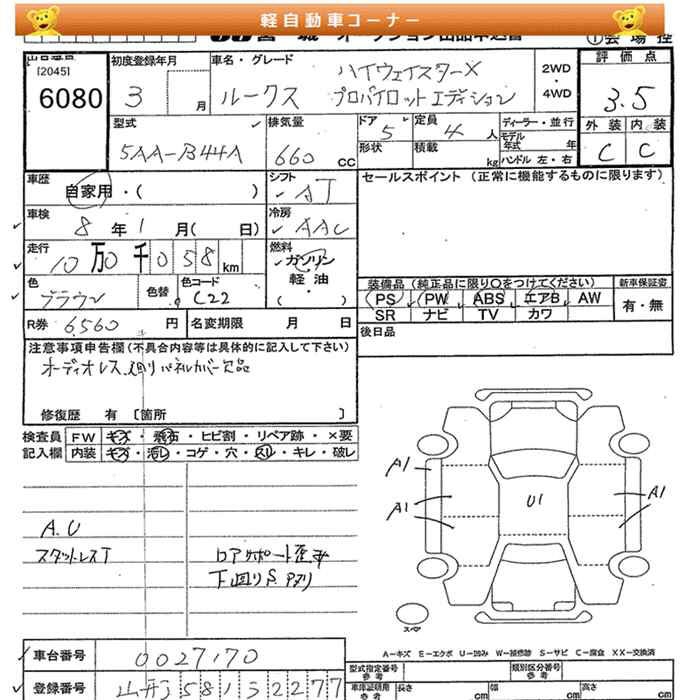 軽自動車コーナー
[2045]
6080
初度登録年月
3 月
車名・グレード
ルークス ハイウェイスターX
プロパイロットエディション
2WD
・
4WD
評価点
3.5
外装 内装
C C
型式
5AA-B44A
排気量
660 CC
ドア 5
形状
定員 4 人
積載 kg
ディーラー・並行
モデル
年式 年
ハンドル 左・右
車歴
自家用・( )
シフト
AT
セールスポイント(正常に機能するものに限ります)
車検
8 年 1 月( 日)
冷房
AAC
走行
10 万 0 千 0 5 8 km
燃料
ガソリン
軽・油
・( )
色
ブラウン
色替
色コード
C22
装備品(純正品に限り○をつけてください)
PS PW ABS エアB AW
SR ナビ TV カワ
新車保証書
有・無
R券 6,560 円
名変期限 月 日
後日品
注意事項申告欄(不具合内容等は具体的に記入して下さい)
オーディオレス 廻りパネルカバー欠品
修復歴 有 [箇所 ]
検査員
記入欄
FW キズ・飛石・ヒビ割・リペア跡・×要
内装 キズ・汚レ・コゲ・穴・スレ・キレ・破レ
A.U
スタットレスT
下回りS.
A1
A1
U1
A1
スペア
A-キズ E-エクボ U-凹み W-補修跡 S-サビ C-腐食 XX-交換済
車台番号 0027170
登録番号 581 32277
型式指定番号
参考
類別区分番号
参考
車庫証明用
参考
長さ cm
幅 cm
高さ cm